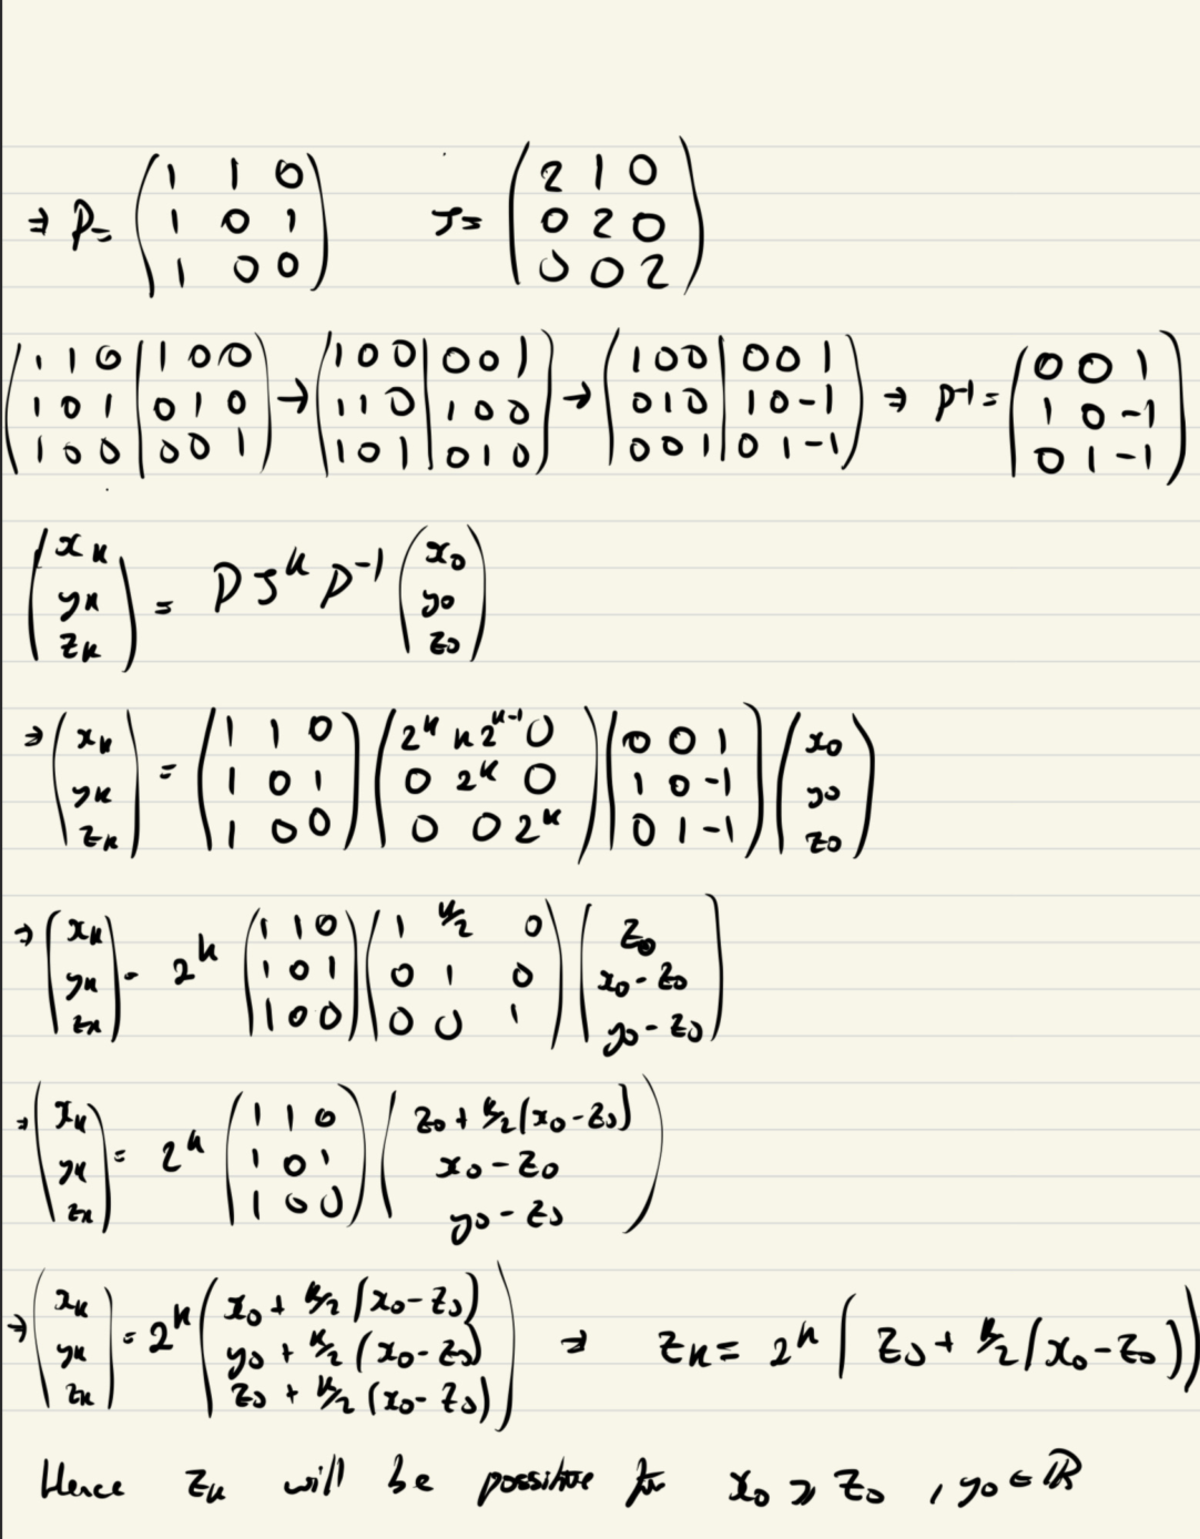 ⇒ P= (1 1 0; 1 0 1; 1 0 0) J= (2 1 0; 0 2 0; 0 0 2)
(1 1 0 | 1 0 0; 1 0 1 | 0 1 0; 1 0 0 | 0 0 1) → (1 0 0 | 0 0 1; 1 1 0 | 1 0 0; 1 0 1 | 0 1 0) → (1 0 0 | 0 0 1; 0 1 0 | 1 0 -1; 0 0 1 | 0 1 -1) ⇒ P⁻¹ = (0 0 1; 1 0 -1; 0 1 -1)
(x_k; y_k; z_k) = P J^k P⁻¹ (x_0; y_0; z_0)
⇒ (x_k; y_k; z_k) = (1 1 0; 1 0 1; 1 0 0) (2^k k2^{k-1} 0; 0 2^k 0; 0 0 2^k) (0 0 1; 1 0 -1; 0 1 -1) (x_0; y_0; z_0)
⇒ (x_k; y_k; z_k) = 2^k (1 1 0; 1 0 1; 1 0 0) (1 k/2 0; 0 1 0; 0 0 1) (z_0; x_0 - z_0; y_0 - z_0)
⇒ (x_k; y_k; z_k) = 2^k (1 1 0; 1 0 1; 1 0 0) (z_0 + k/2(x_0 - z_0); x_0 - z_0; y_0 - z_0)
⇒ (x_k; y_k; z_k) = 2^k (x_0 + k/2(x_0 - z_0); y_0 + k/2(x_0 - z_0); z_0 + k/2(x_0 - z_0)) ⇒ z_k = 2^k (z_0 + k/2(x_0 - z_0))
Hence z_k will be possitive for x_0 ≥ z_0 , y_0 ∈ ℝ